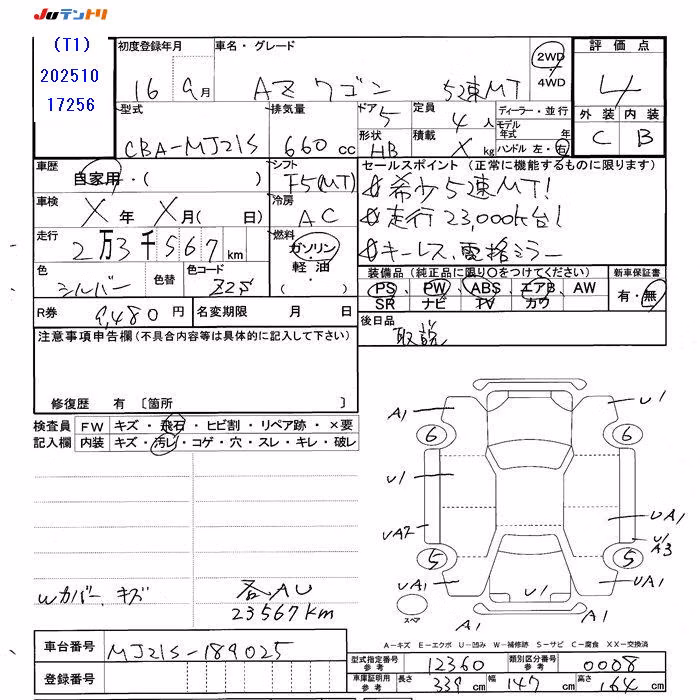 Juテントリ
(T1)
202510
17256
初度登録年月
16 9月
車名・グレード
AZ ワゴン 5速MT
2WD
・
4WD
評価点
4
外装 内装
C B
型式
CBA-MJ21S
排気量
660 cc
ドア
5
定員
4 人
ディーラー・並行
モデル
年式 年
形状
HB
積載
X kg
ハンドル 左・右
車歴
自家用・( )
シフト
F5(MT)
セールスポイント (正常に機能するものに限ります)
希少5速MT!
走行23,000k台!
キーレス、電格ミラー
車検
X 年 X 月( 日)
冷房
AC
走行
2万3千567 km
燃料
ガソリン
軽油
( )
色
シルバー
色替
色コード
Z2S
装備品 (純正品に限り○をつけてください)
PS、PW、ABS、エアB、AW
SR ナビ TV カワ
新車保証書
有・無
R券 9,480 円
名変期限 月 日
後日品
取説
注意事項申告欄(不具合内容等は具体的に記入して下さい)
修復歴 有 〔箇所 〕
検査員
記入欄
FW キズ・飛石・ヒビ割・リペア跡・×要
内装 キズ・汚レ・コゲ・穴・スレ・キレ・破レ
A1
U1
6
6
U1
UA2
UA1
U1
A3
5
5
UA1
U1
UA1
A1
A1
スペア
Wカバー、キズ
各AU
23567km
A-キズ E-エクボ U-凹み W-補修跡 S-サビ C-腐食 XX-交換済
車台番号 MJ21S-189025
登録番号
型式指定番号
参考
12360
類別区分番号
参考
0008
車庫証明用
参考
長さ 339 cm 幅 147 cm 高さ 164 cm